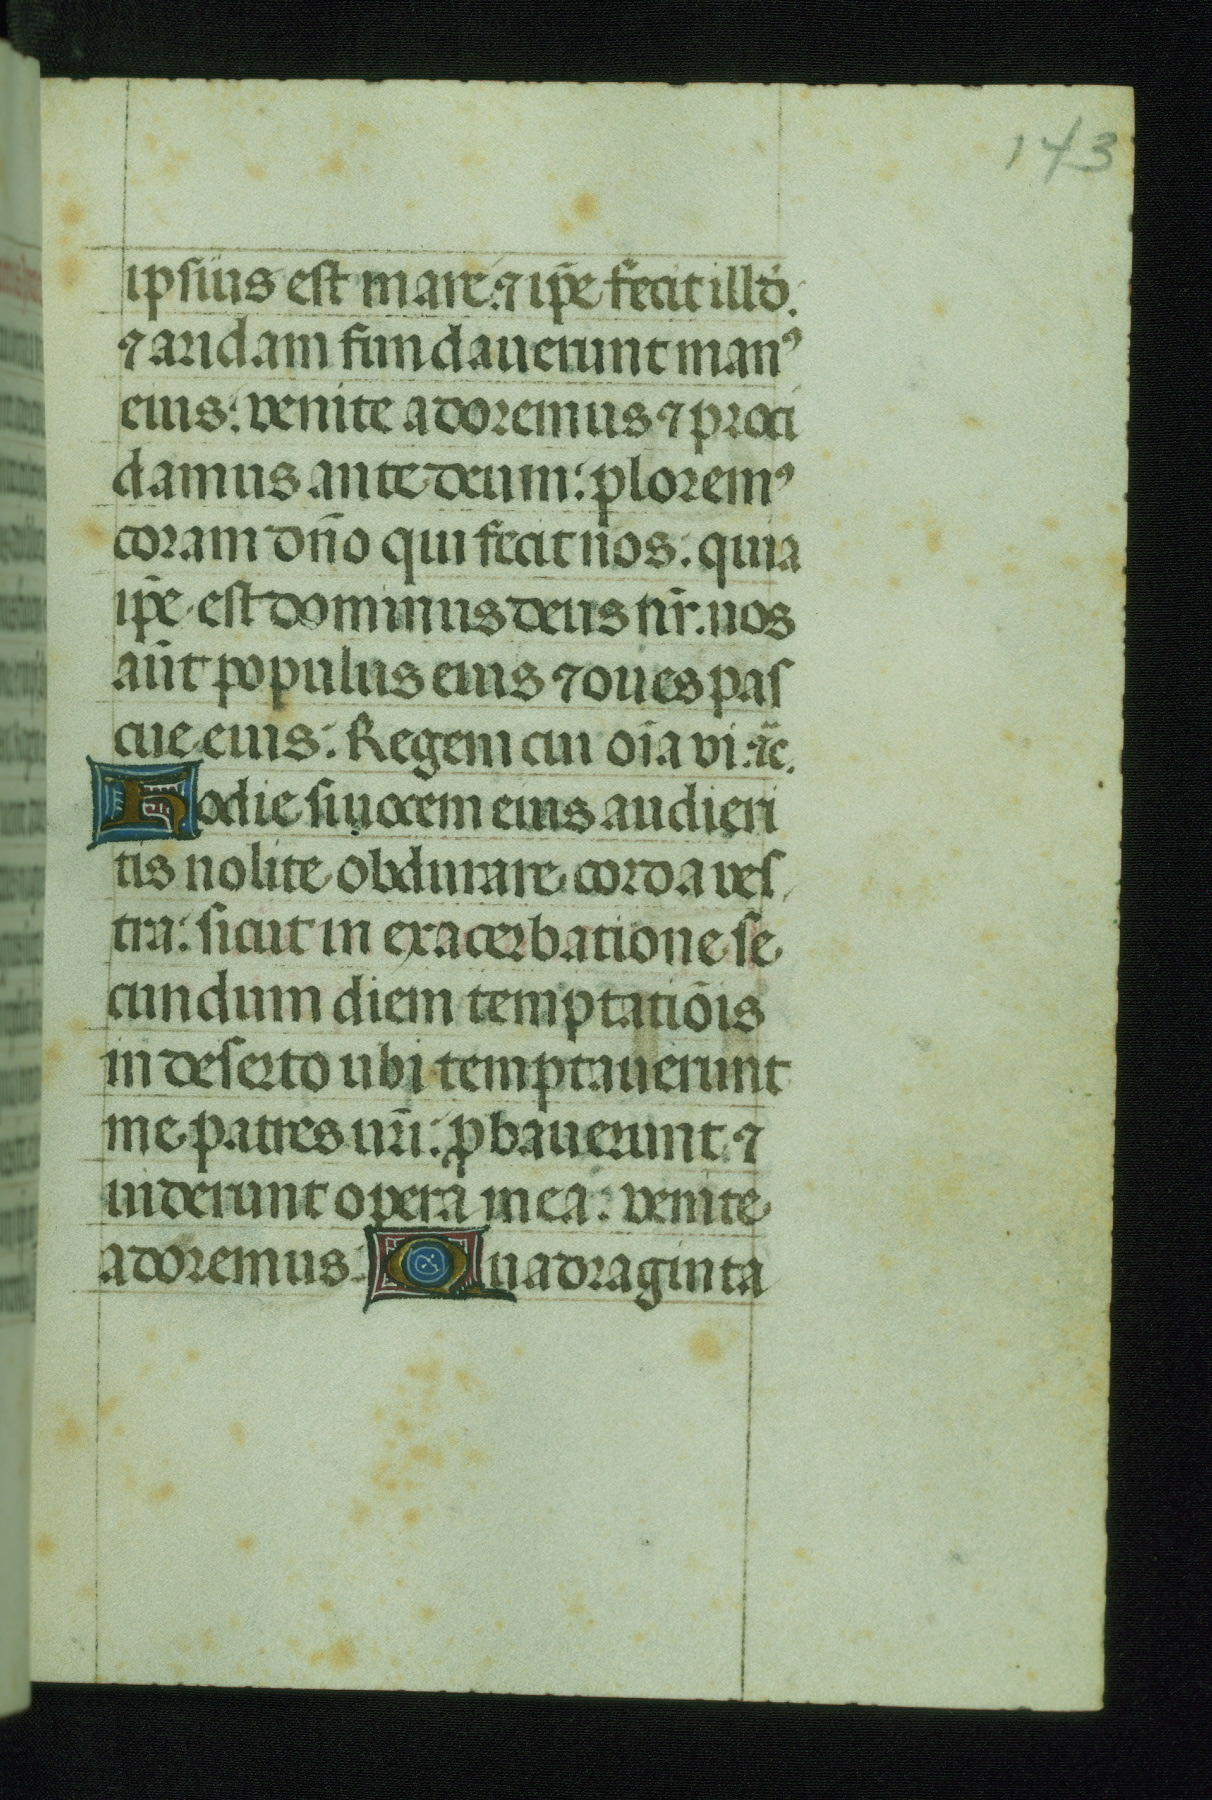 143
ipsius est mare: ⁊ ip̄e fecit illd̄.
⁊ aridam fundauerunt manꝰ
eius: venite adoremus ⁊ proci
damus ante deum: ploremꝰ
coram dn̄o qui fecit nos: quia
ip̄e est dominus deus nr̄. nos
aūt populus eius ⁊ oues pas
cue eius: Regem cui oīa vi. ⁊c̄.
Hodie si uocem eius audieri
tis nolite obdurare corda ves
tra: sicut in exacerbatione se
cundum diem temptatiōis
in deserto ubi temptauerunt
me patres ur̄i: ꝓbauerunt ⁊
uiderunt opera mea: venite
adoremus: Quadraginta